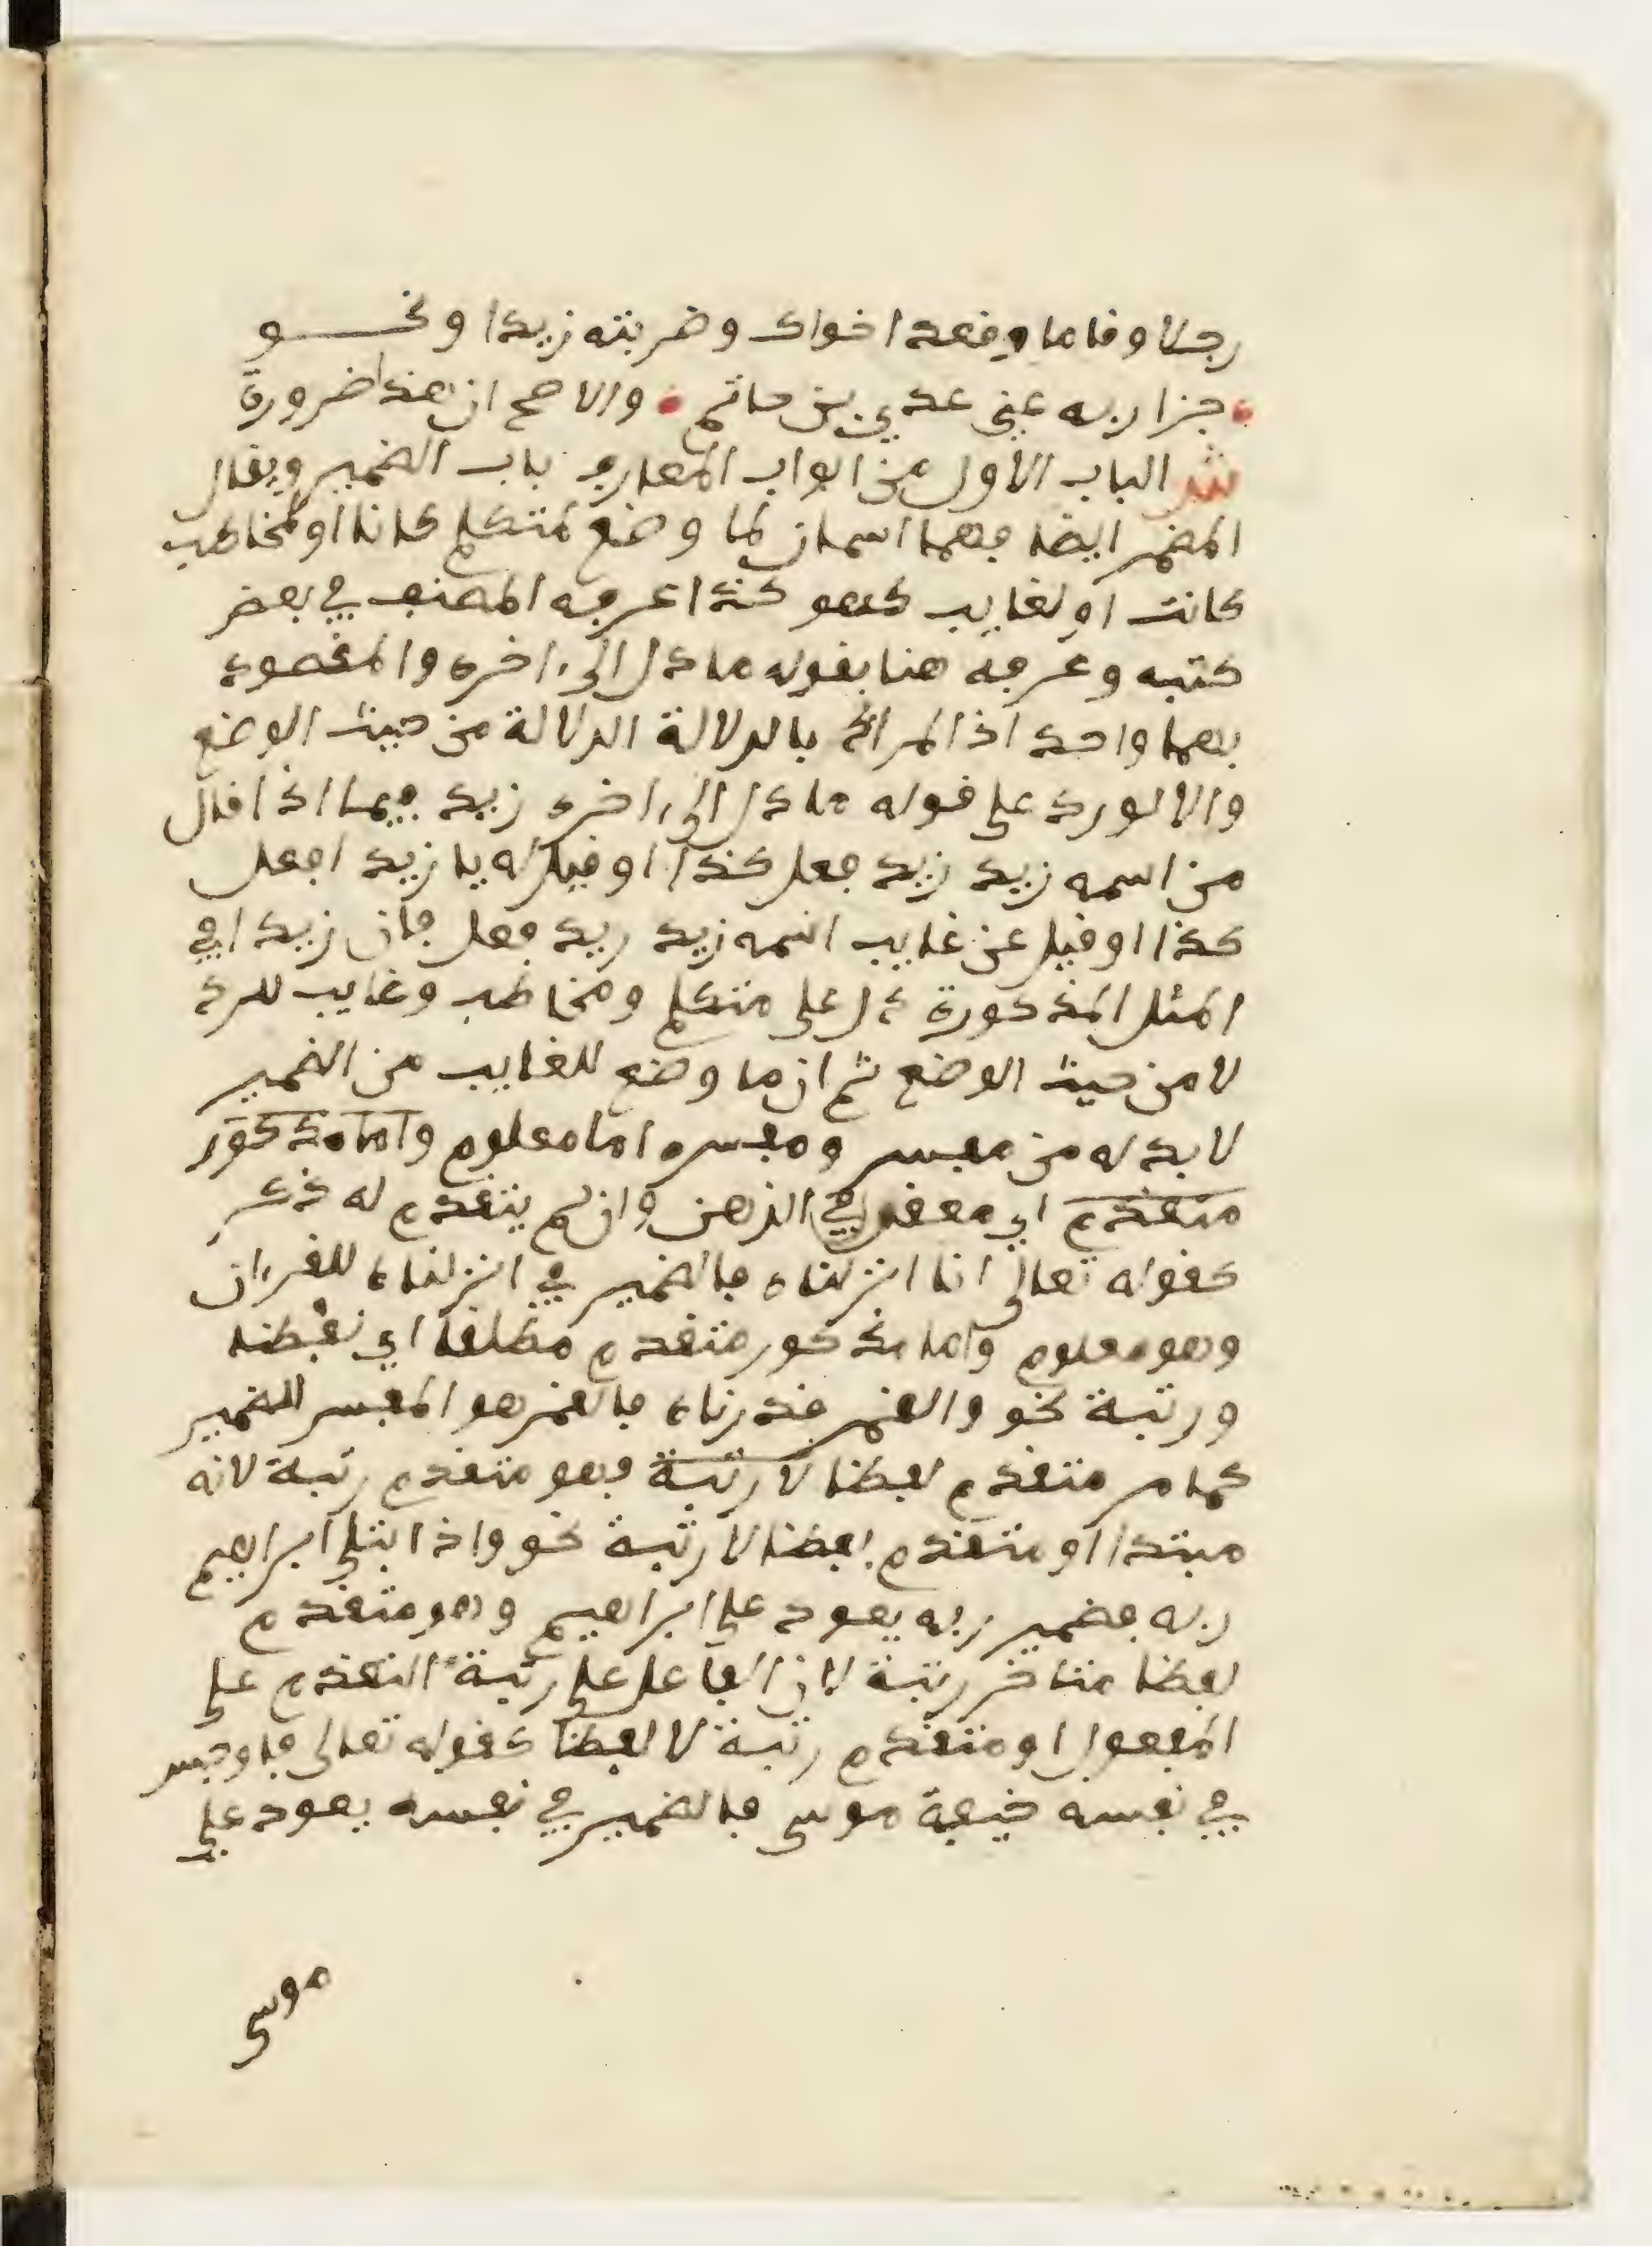 رجلا وقاما وقعد اخواك وضربته زيدا ونحـــو
جزا ربه عني عدي بن حاتم والاصح ان هذا ضرورة
ش الباب الاول من ابواب المعارف باب الضمير ويقال
المضمر ايضا فهما اسمان لما وضع لمتكلم كانا او لمخاطب
كانت او لغايب كهو كذا عرفه المصنف في بعض
كتبه وعرفه هنا بقوله ما دل الى ءاخره والمقصود
بهما واحد اذ المراد بالدلالة الدلالة من حيث الوضع
والا لورد على قوله ما دل الى ءاخره زيد فيما اذا قال
من اسمه زيد زيد فعل كذا او قيل له يا زيد افعل
كذا او قيل عن غايب اسمه زيد زيد فعل فان زيدا في
المثل المذكورة دل على متكلم ومخاطب وغايب لكن
لا من حيث الوضع ثم ان ما وضع للغايب من الضمير
لا بد له من مفسر ومفسره اما معلوم واما مذكور
متقدم اي معقول في الذهن وان لم يتقدم له ذكر
كقوله تعالى انا انزلناه فالضمير في انزلناه للقرءان
وهو معلوم واما مذكور متقدم مطلقا اي لفظا
ورتبة نحو والقمر قدرناه فالقمر هو المفسر للضمير
كما مر متقدم لفظا لا رتبة فهو متقدم رتبة لانه
مبتدا او متقدم لفظا لا رتبة نحو واذ ابتلى ابراهيم
ربه فضمير ربه يعود على ابراهيم وهو متقدم
لفظا متاخر رتبة لان الفاعل على رتبة التقدم على
المفعول او متقدم رتبة لا لفظا كقوله تعالى فاوجس
في نفسه خيفة موسى فالضمير في نفسه يعود على
موسى